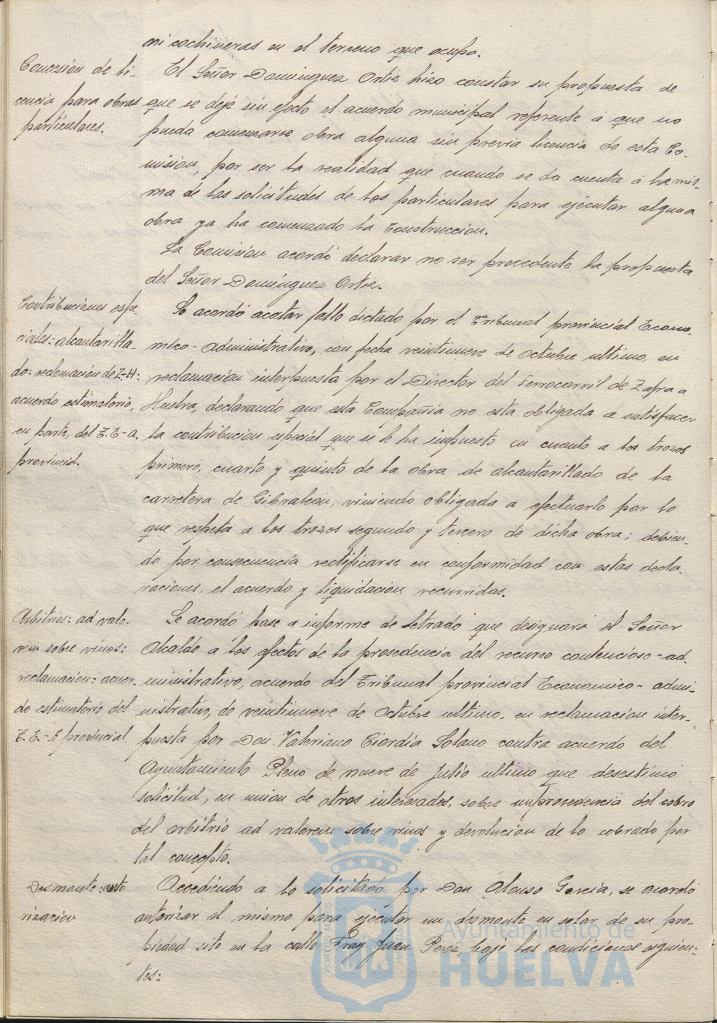 ni cochineras en el terreno que ocupa.
Concesión de li-
cencia para obras
particulares.
El Señor Domínguez Ortiz hizo constar su propuesta de
que se deje sin efecto el acuerdo municipal referente a que no
pueda comenzarse obra alguna sin previa licencia de esta Co-
misión, por ser la realidad que cuando se da cuenta á la mis-
ma de las solicitudes de los particulares para ejecutar alguna
obra ya ha comenzado la construccion.
La Comisión acordó declarar no ser procedente la propuesta
del Señor Domínguez Ortiz.
Contribuciones espe-
ciales: alcantarilla-
do: reclamación de Z-H:
acuerdo estimatorio,
en parte, del T. E-A.
provincial.
Se acordó acatar fallo dictado por el Tribunal provincial Econo-
mico-administrativo, con fecha veintinueve de octubre ultimo, en
reclamacion interpuesta por el Director del ferrocarril de Zafra a
Huelva, declarando que esta Compañia no está obligada a satisfacer
la contribucion especial que se le ha impuesto en cuanto a los trozos
primero, cuarto y quinto de la obra de alcantarillado de la
carretera de Gibraleon, viniendo obligada a efectuarlo por lo
que respeta a los trozos segundo y tercero de dicha obra; debien-
do por consecuencia rectificarse en conformidad con estas decla-
raciones, el acuerdo y liquidacion recurridos.
Arbitrios: ad valo-
rem sobre vinos:
reclamacion: acuer-
do estimatorio del
T. E.-A provincial
Se acordó pase a informe de letrado que designará el Señor
Alcalde a los efectos de la procedencia del recurso contencioso-ad-
ministrativo, acuerdo del Tribunal provincial Economico-admi-
nistrativo, de veintinueve de octubre ultimo, en reclamacion inter-
puesta por Don Valeriano Ciordia Solano contra acuerdo del
Ayuntamiento Pleno de nueve de Julio ultimo que desestimó
solicitud, en union de otros interesados, sobre improcedencia del cobro
del arbitrio ad valorem sobre vinos y devolucion de lo cobrado por
tal concepto.
Desmonte: auto-
rizacion
Accediendo a lo solicitado por Don Alonso Garcia, se acordó
autorizar al mismo para ejecutar un desmonte en solar de su pro-
piedad sito en la calle Fray Juan Perez, bajo las condiciones siguien-
tes:
Ayuntamiento de
HUELVA